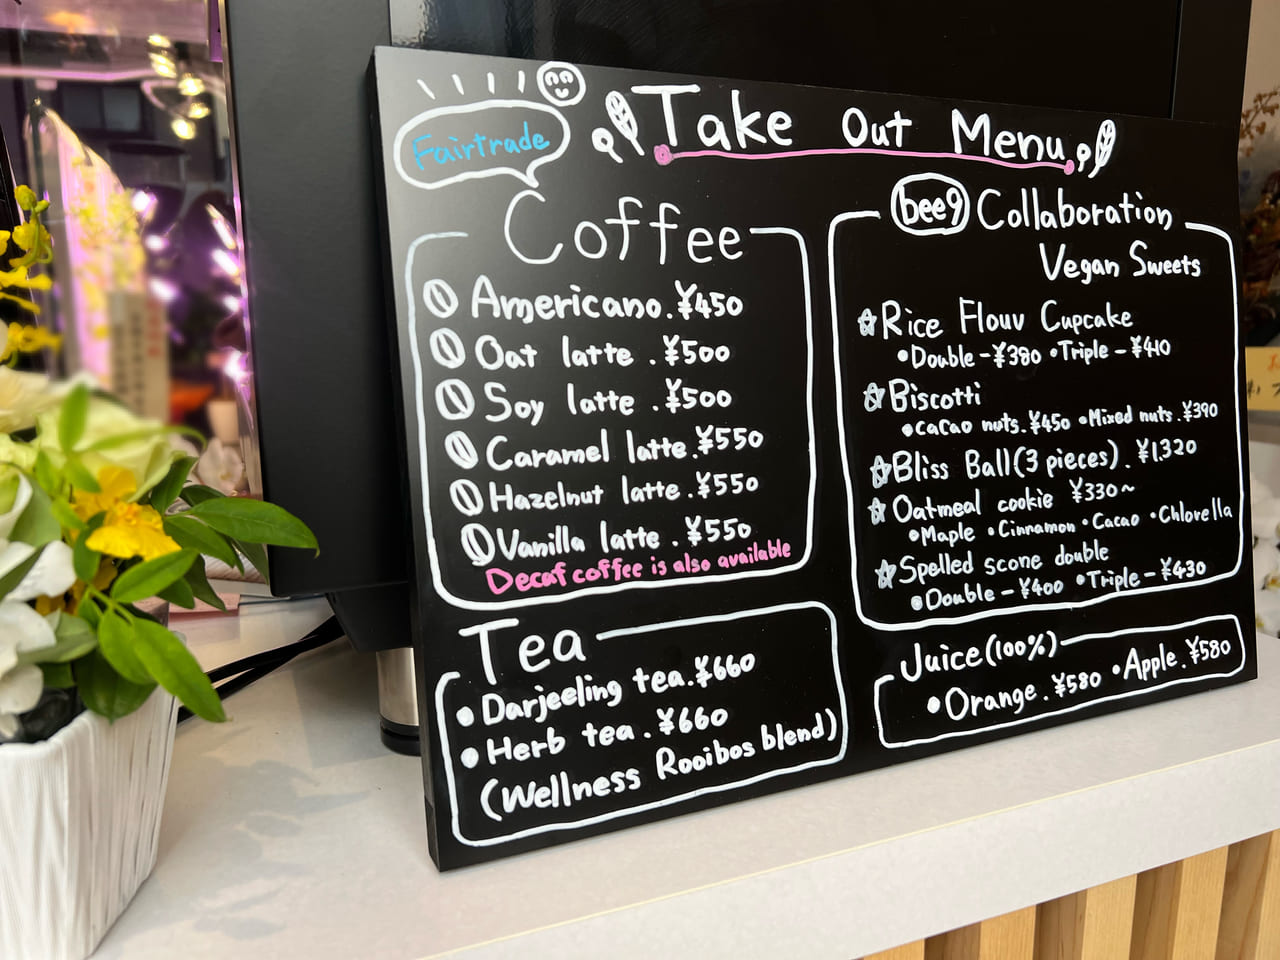 Fairtrade
Take Out Menu
Coffee
Americano. ¥450
Oat latte. ¥500
Soy latte. ¥500
Caramel latte. ¥550
Hazelnut latte. ¥550
Vanilla latte. ¥550
Decaf coffee is also available
Tea
• Darjeeling tea. ¥660
• Herb tea. ¥660
(Wellness Rooibos blend)
bee9 Collaboration
Vegan Sweets
☆ Rice Flour Cupcake
• Double - ¥380 • Triple - ¥410
☆ Biscotti
• cacao nuts. ¥450 • Mixed nuts. ¥390
☆ Bliss Ball (3 pieces). ¥1,320
☆ Oatmeal cookie ¥330~
• Maple • Cinnamon • Cacao • Chlorella
☆ Spelled scone double
• Double - ¥400 • Triple - ¥430
Juice (100%)
• Orange. ¥580 • Apple. ¥580